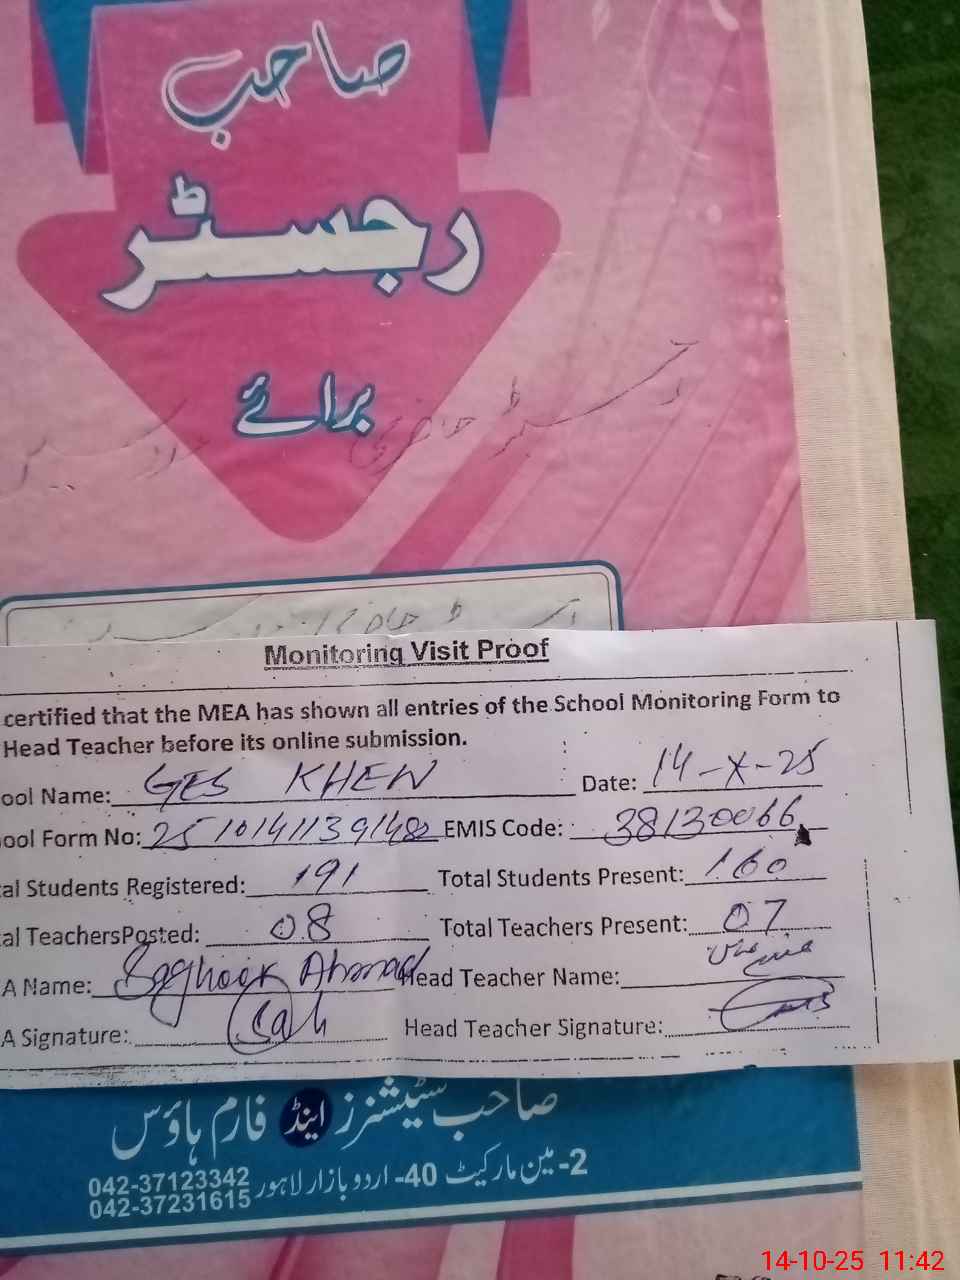 صاحب
رجسٹر
برائے
رجسٹر حاضری
Monitoring Visit Proof
certified that the MEA has shown all entries of the School Monitoring Form to
Head Teacher before its online submission.
ool Name: GES KHEW Date: 14-X-25
ool Form No: EMIS Code: 38130066
al Students Registered: 191 Total Students Present: 160
al TeachersPosted: 08 Total Teachers Present: 07
A Name: Sagheer Ahmad Head Teacher Name:
A Signature: Head Teacher Signature:
صاحب سٹیشنرز اینڈ فارم ہاؤس
2- مین مارکیٹ 40- اردو بازار لاہور 042-37123342
042-37231615
14-10-25 11:42